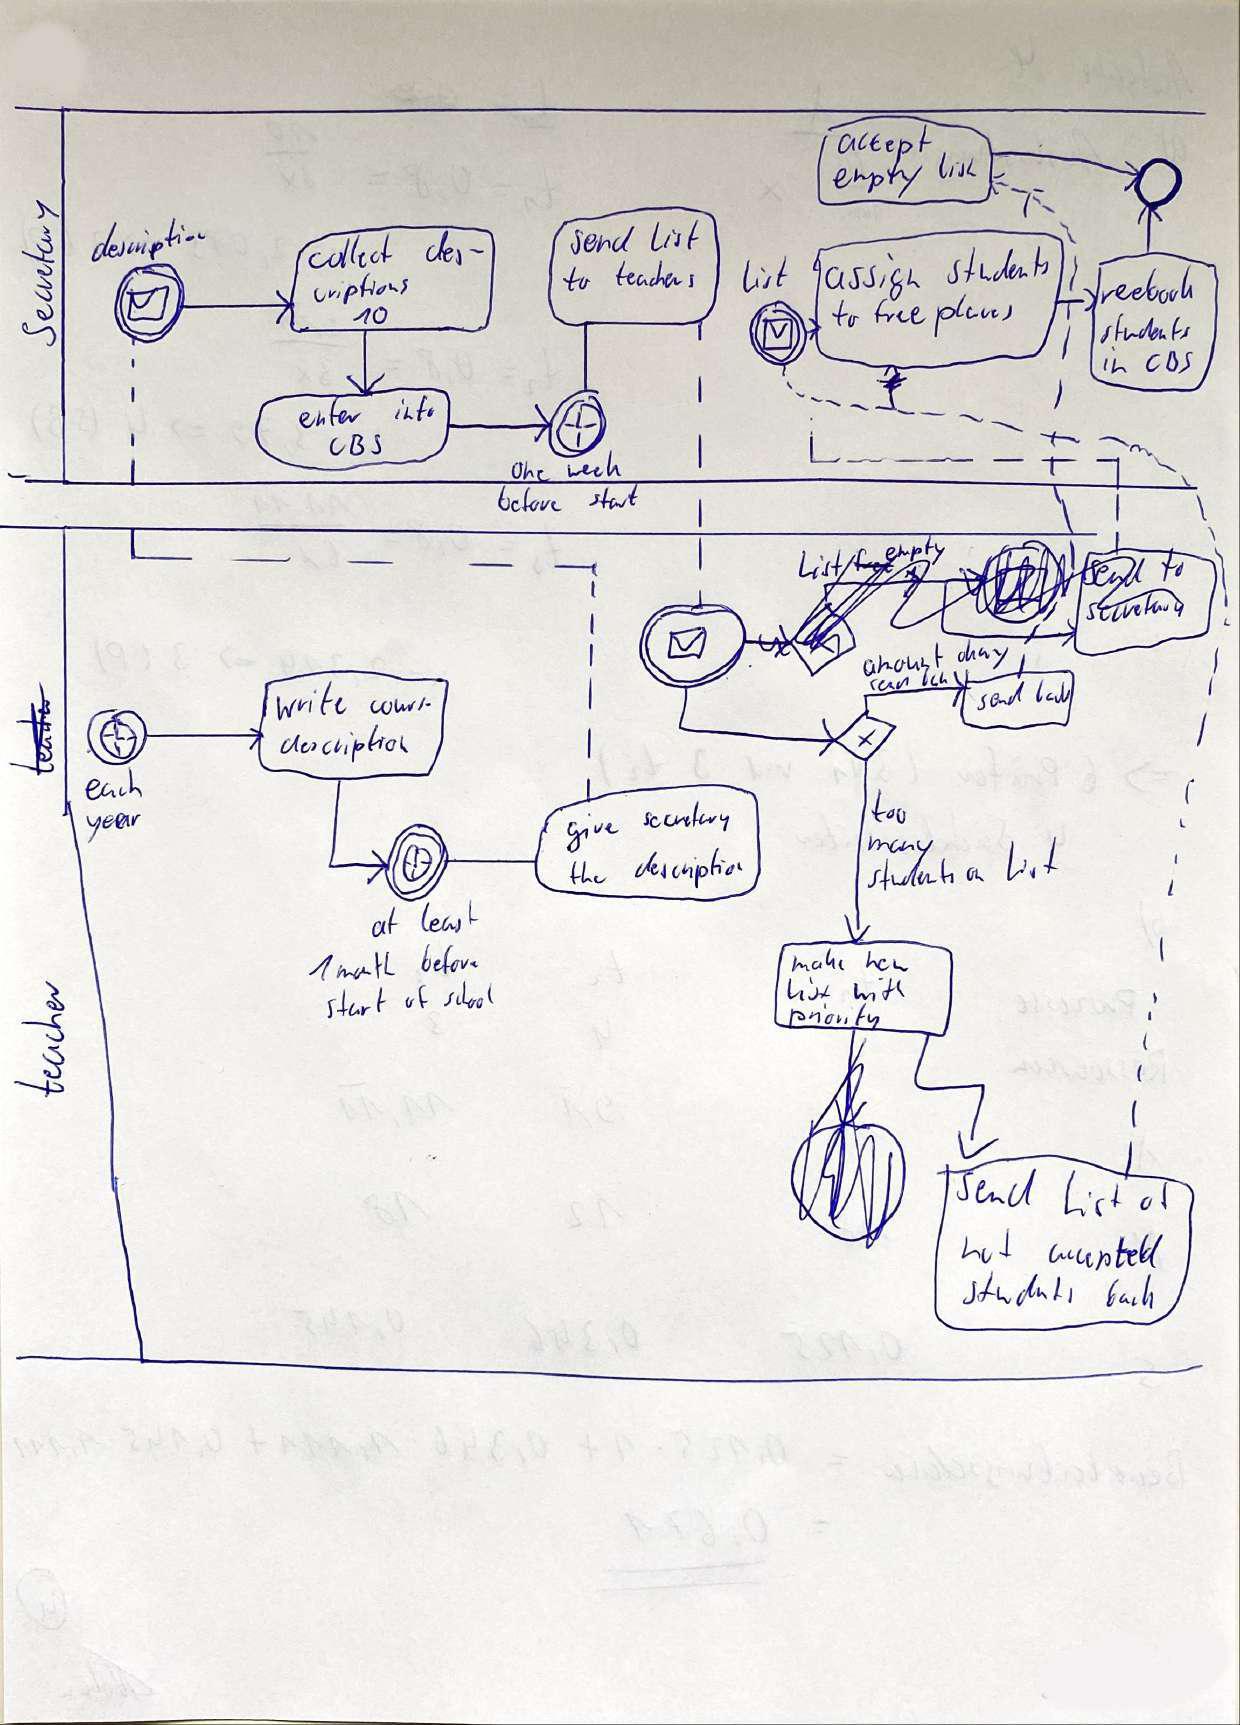 Secretary
description
collect des-
criptions
10
enter into
CBS
one week
before start
send List
to teachers
List
assign students
to free places
accept
empty list
reebook
students
in CBS
teacher
each
year
write cours-
description
at least
1 month before
start of school
give secretary
the description
List
empty
send to
secretary
amount okay
send back
too
many
students on List
make new
list with
priority
Send List of
not accepted
students back